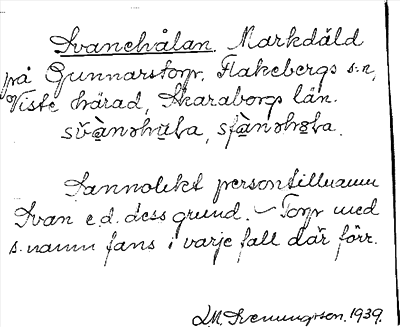 Svanehålan. Markdäld
på Gunnarstorp, Flakebergs s:n,
Viste härad, Skaraborgs län.
Sannolikt persontillnamn
Svan e.d. dess grund. – Torp med
s. namn fans i varje fall där förr.
Svenungsson. 1939.